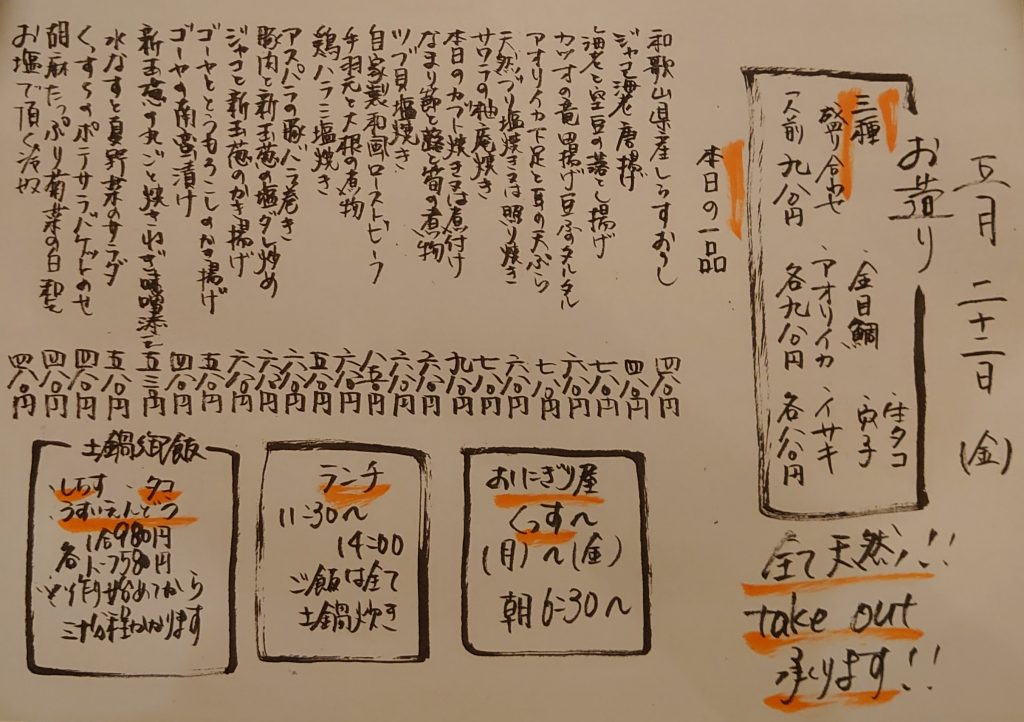 五月二十二日(金)
お造り
三種
盛り合わせ
一人前九八〇円
・生タコ
・金目鯛
・穴子
・アオリイカ
・イサキ
各九八〇円
各八八〇円
全て天然!!
take out
承ります!!
本日の一品
和歌山県産しらすおろし 四八〇円
ジャコ海老唐揚げ 四八〇円
海老と空豆の落とし揚げ 七八〇円
カツオの竜田揚げ豆腐のタルタル 六八〇円
アオリイカ下足と耳の天ぷら 七八〇円
天然ブリ塩焼き又は照り焼き 六八〇円
サワラの柚庵焼き 七八〇円
本日のカブト焼き又は煮付け 九八〇円
なまり節と蕗と筍の煮物 六八〇円
ツブ貝塩焼き 六八〇円
自家製和風ローストビーフ
手羽元と大根の煮物 六八〇円
鶏ハラミ塩焼き 五八〇円
アスパラの豚バラ巻き 六八〇円
豚肉と新玉葱の塩ダレ炒め 六八〇円
ジャコと新玉葱のかき揚げ 六八〇円
ゴーヤととうもろこしのかき揚げ 五八〇円
ゴーヤの南蛮漬け 四八〇円
新玉葱の丸ごと焼きねぎ味噌添え 五三〇円
水なすと真野菜のサラダ 五八〇円
くっすうのポテサラバゲットのせ 四八〇円
胡麻たっぷり菊菜の白和え 四八〇円
お塩で頂く冷奴 四八〇円
おにぎり屋
くっす~
(月)~(金)
朝6:30~
ランチ
11:30~
14:00
ご飯は全て
土鍋炊き
土鍋御飯
・しらす ・タコ
・うすいえんどう
各1合980円
ハーフ580円
※作り始めてから
三十分程かかります